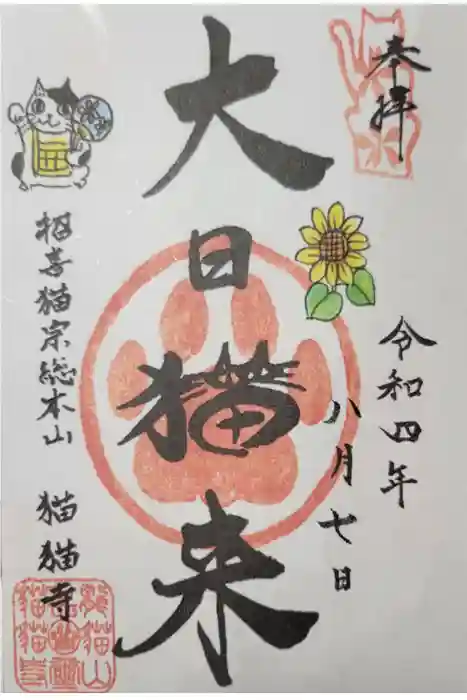 奉拝
令和四年
八月七日
大日猫来
招喜猫宗総本山
猫猫寺